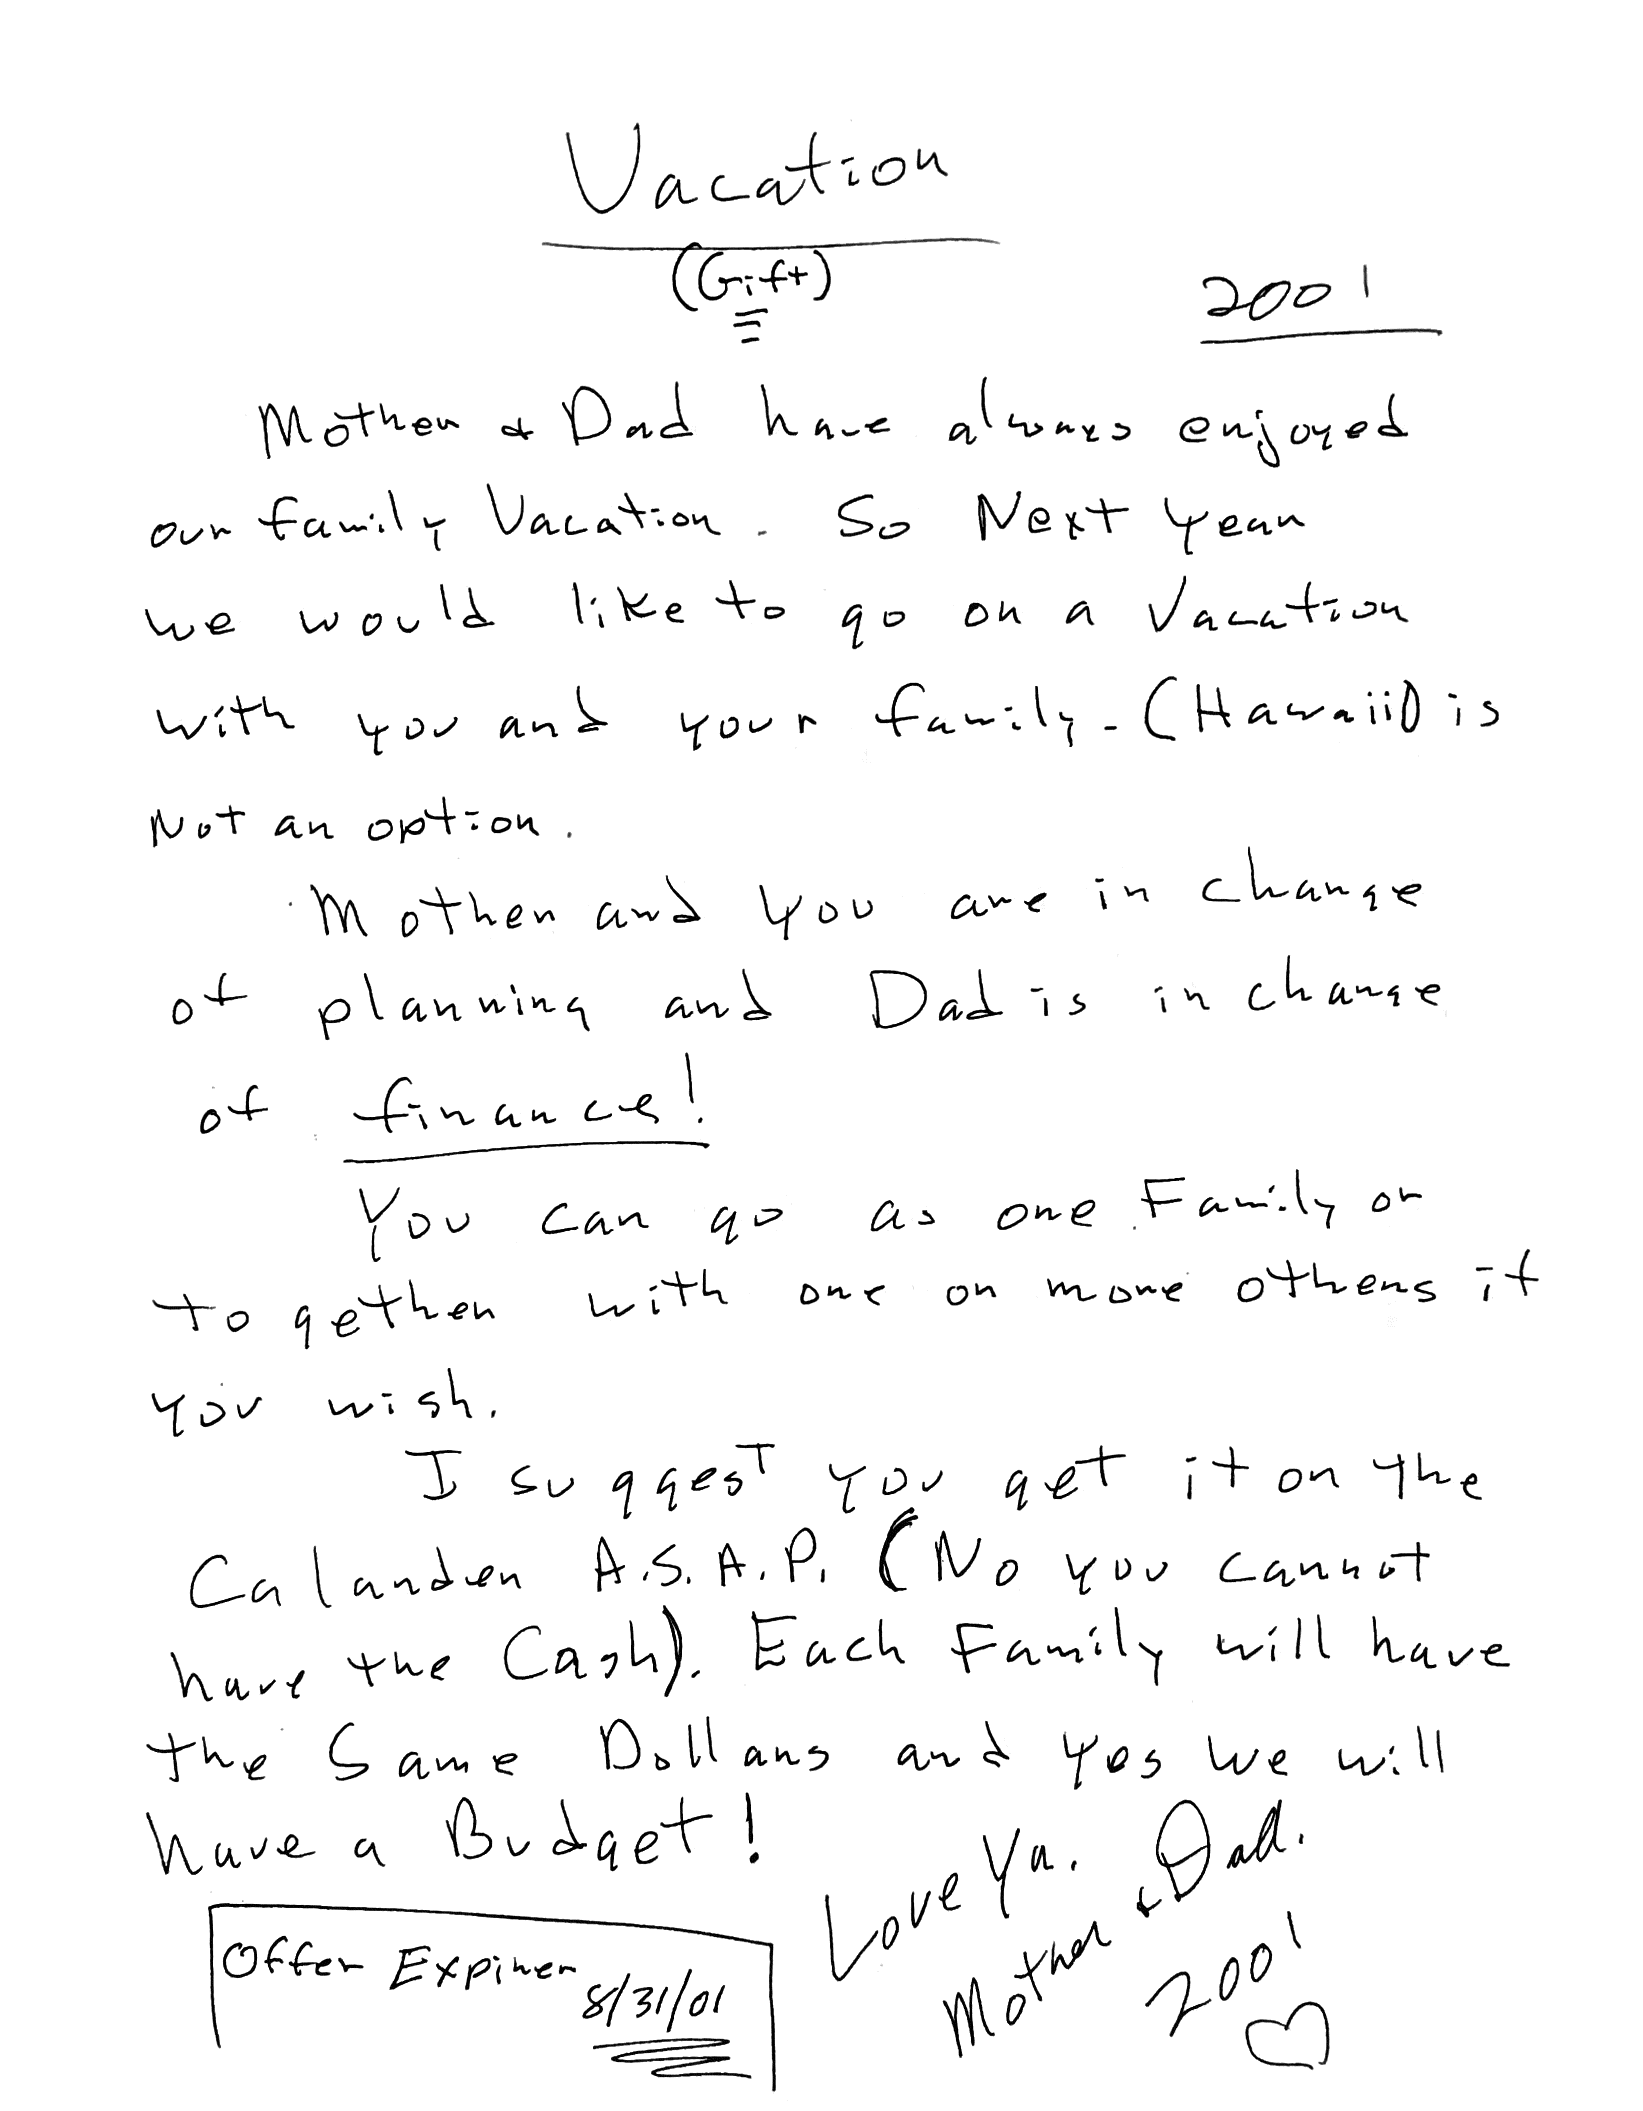 Vacation
(Gift)
2001
Mother & Dad have always enjoyed
our family Vacation. So Next year
we would like to go on a Vacation
with you and your family. (Hawaii) is
Not an option.
Mother and you are in charge
of planning and Dad is in charge
of finance!
You can go as one Family or
together with one or more others if
you wish.
I suggest you get it on the
Calander A.S.A.P. (No you cannot
have the Cash). Each Family will have
the Same Dollars and yes we will
have a Budget!
Love Ya.
Mother & Dad.
2001
Offer Expires
8/31/01